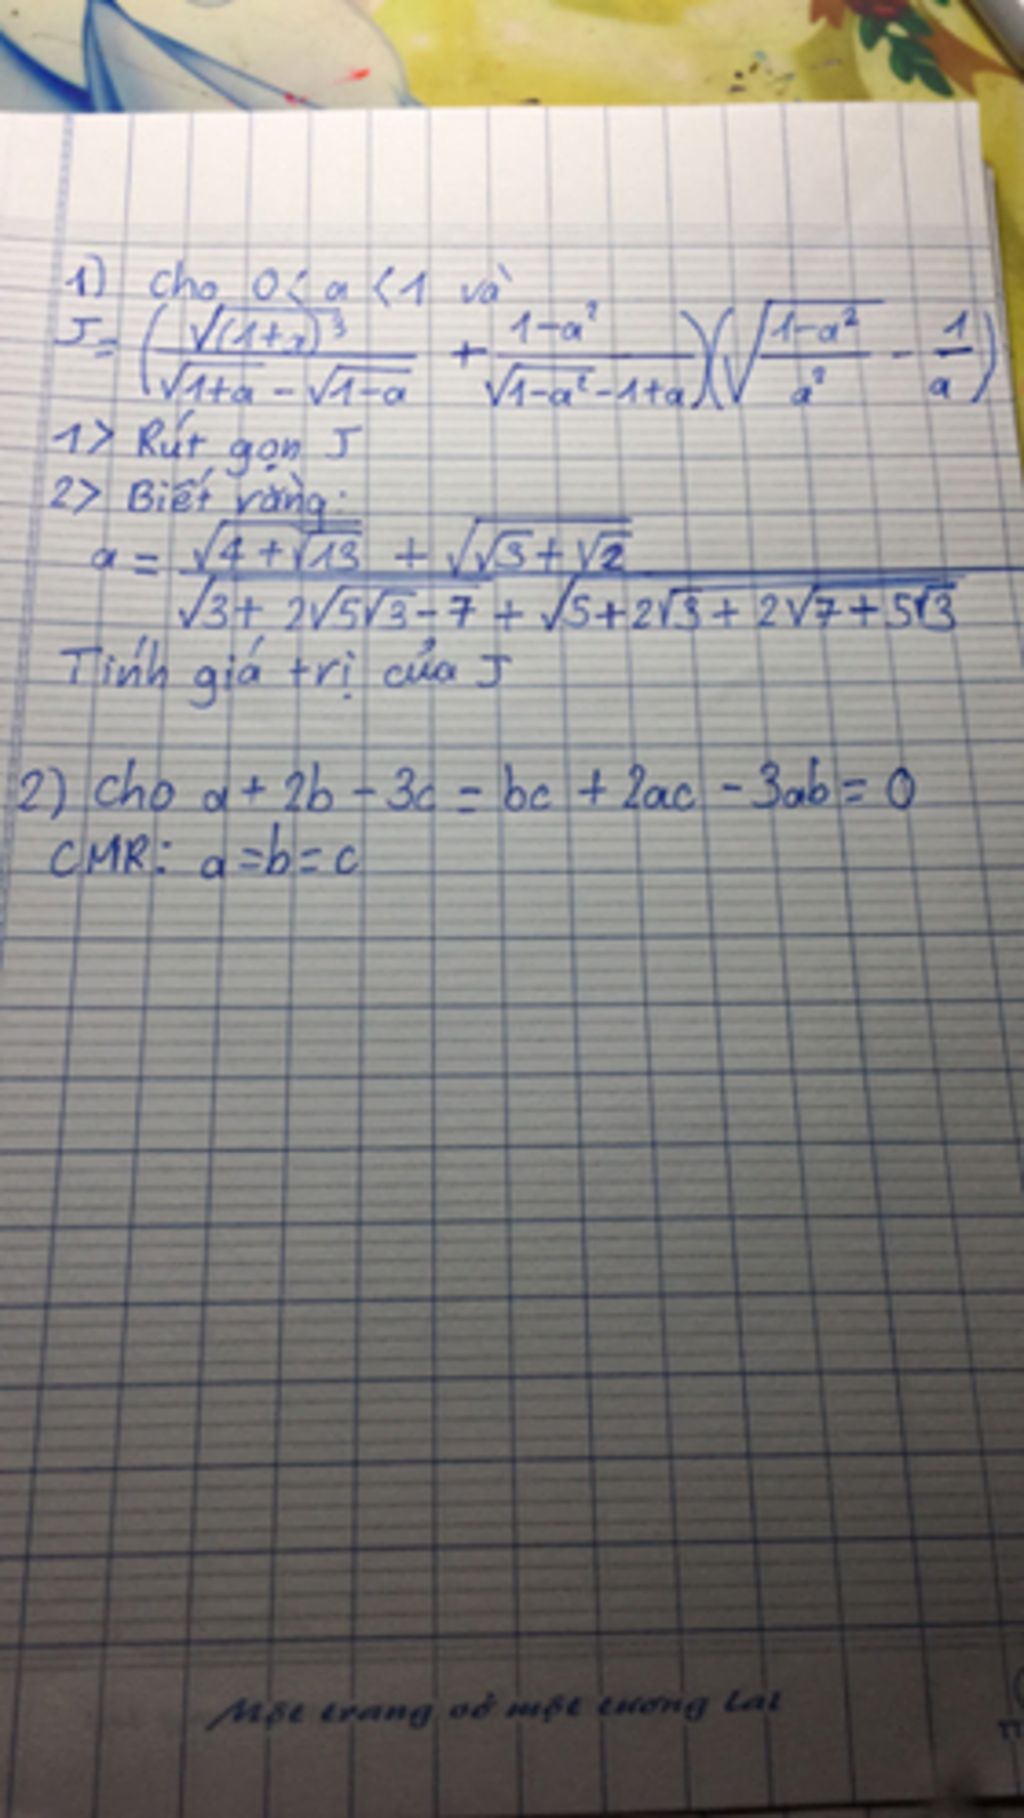 1) Cho 0 < a < 1 và
J = (√(1+a)³ / (√1+a - √1-a) + (1-a²) / (√1-a² - 1+a))(√((1-a²)/a²) - 1/a)
1> Rút gọn J
2> Biết rằng:
a = (√4+√13 + √√3+√2) / (√3+2√5√3-7 + √5+2√3+2√7+5√3)
Tính giá trị của J
2) Cho a + 2b - 3c = bc + 2ac - 3ab = 0
CMR: a = b = c
Một trang vở một tương lai